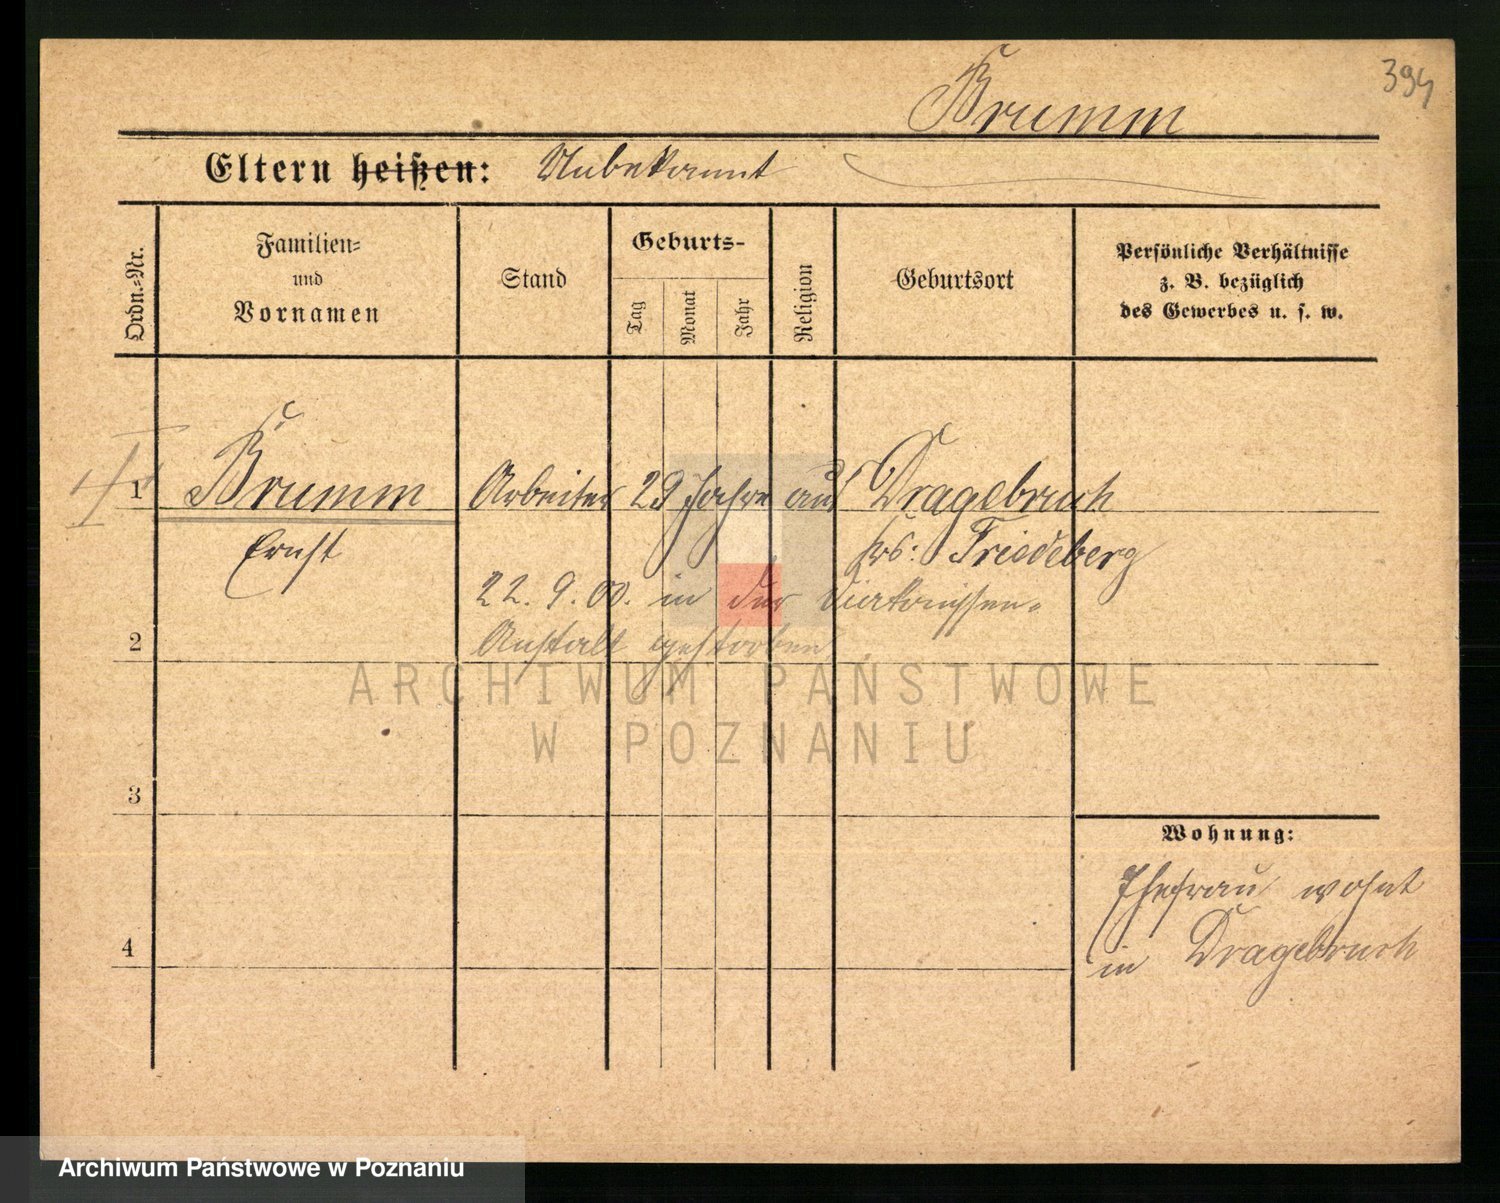 394
Brumm
Eltern heißen: Unbekannt
Ordn.-Nr.
Familien-
und
Vornamen
Stand
Geburts-
Tag
Monat
Jahr
Religion
Geburtsort
Persönliche Verhältnisse
z. B. bezüglich
des Gewerbes u. s. w.
1 Brumm Arbeiter 29 Jahre aus Dragebruch
Ernst Krs: Friedeberg
22. 9. 00. in der Diakonissen-
2 Anstalt gestorben
ARCHIWUM PAŃSTWOWE
W POZNANIU
3
Wohnung:
Ehefrau wohnt
4 in Dragebruch
Archiwum Państwowe w Poznaniu